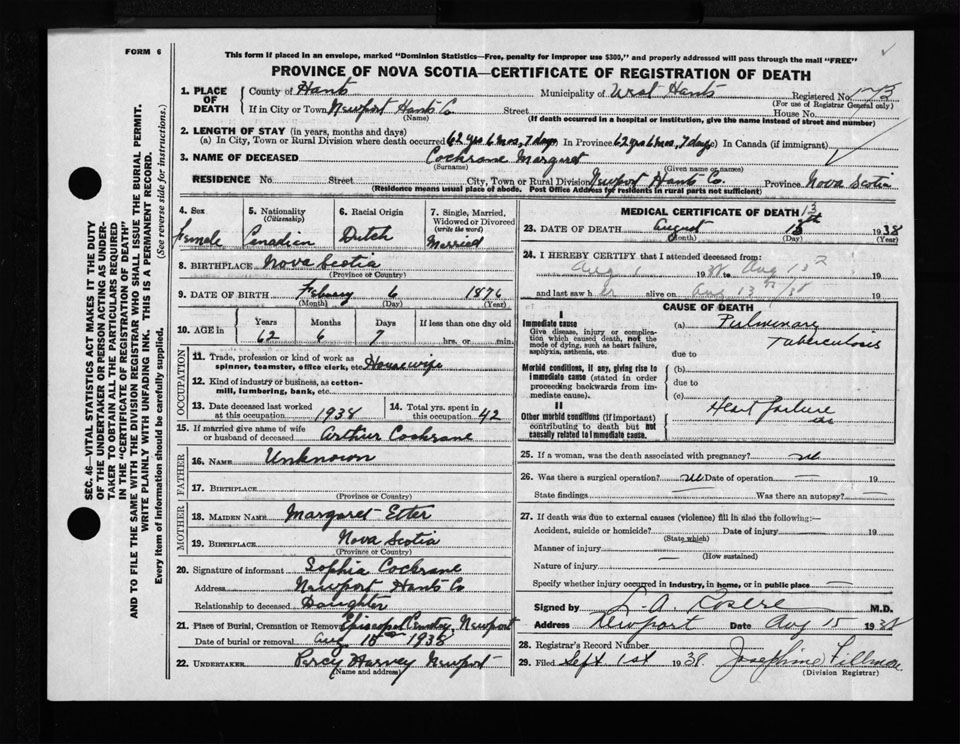 FORM 6
This form if placed in an envelope, marked "Dominion Statistics—Free, penalty for improper use $300," and properly addressed will pass through the mail "FREE"
PROVINCE OF NOVA SCOTIA—CERTIFICATE OF REGISTRATION OF DEATH
SEC. 46—VITAL STATISTICS ACT MAKES IT THE DUTY
OF THE UNDERTAKER OR PERSON ACTING AS UNDER-
TAKER TO OBTAIN ALL THE PARTICULARS REQUIRED
IN THE "CERTIFICATE OF REGISTRATION OF DEATH"
AND TO FILE THE SAME WITH THE DIVISION REGISTRAR WHO SHALL ISSUE THE BURIAL PERMIT.
WRITE PLAINLY WITH UNFADING INK. THIS IS A PERMANENT RECORD.
Every item of information should be carefully supplied. (See reverse side for instructions.)
1. PLACE OF DEATH County of Hants Municipality of West Hants Registered No.
(For use of Registrar General only)
If in City or Town Newport Hants Co Street House No.
(Name) (If death occurred in a hospital or institution, give the name instead of street and number)
2. LENGTH OF STAY (in years, months and days)
(a) In City, Town or Rural Division where death occurred 62 yrs 6 mos, 7 days In Province 62 yrs 6 mos, 7 days In Canada (if immigrant)
3. NAME OF DECEASED Cochrane Margaret
(Surname) (Given name or names)
RESIDENCE No Street City, Town or Rural Division Newport Hants Co. Province Nova Scotia
(Residence means usual place of abode. Post Office Address for residents in rural parts not sufficient)
4. Sex Female
5. Nationality (Citizenship) Canadian
6. Racial Origin Dutch
7. Single, Married, Widowed or Divorced (write the word) Married
8. BIRTHPLACE Nova Scotia
(Province or Country)
9. DATE OF BIRTH February 6 1876
(Month) (Day) (Year)
10. AGE in Years 62 Months 6 Days 7 If less than one day old hrs. or min.
OCCUPATION
11. Trade, profession or kind of work as spinner, teamster, office clerk, etc. Housewife
12. Kind of industry or business, as cotton-mill, lumbering, bank, etc.
13. Date deceased last worked at this occupation 1938
14. Total yrs. spent in this occupation 42
15. If married give name of wife or husband of deceased Arthur Cochrane
FATHER
16. NAME Unknown
17. BIRTHPLACE
(Province or Country)
MOTHER
18. MAIDEN NAME Margaret Etter
19. BIRTHPLACE Nova Scotia
(Province or Country)
20. Signature of informant Sophia Cochrane
Address Newport Hants Co
Relationship to deceased Daughter
21. Place of Burial, Cremation or Removal Episcopal Cemetery, Newport
Date of burial or removal Aug 15 1938
22. UNDERTAKER Percy Harvey Newport
(Name and address)
MEDICAL CERTIFICATE OF DEATH
23. DATE OF DEATH August 13th 1938
(Month) (Day) (Year)
24. I HEREBY CERTIFY that I attended deceased from:
Aug 1 1938 to Aug 13 19
and last saw her alive on Aug 13 /38 19
CAUSE OF DEATH
I
Immediate cause
Give disease, injury or complication which caused death, not the mode of dying, such as heart failure, asphyxia, asthenia, etc.
(a) Pulmonary Tuberculosis
due to
Morbid conditions, if any, giving rise to immediate cause (stated in order proceeding backwards from immediate cause).
(b)
due to
(c)
II
Other morbid conditions (if important) contributing to death but not causally related to immediate cause.
Heart failure
25. If a woman, was the death associated with pregnancy? no
26. Was there a surgical operation? no Date of operation — 19
State findings — Was there an autopsy? —
27. If death was due to external causes (violence) fill in also the following:—
Accident, suicide or homicide? Date of injury 19
(State which)
Manner of injury
(How sustained)
Nature of injury —
Specify whether injury occurred in industry, in home, or in public place —
Signed by M.D.
Address Newport Date Aug 15 1938
28. Registrar's Record Number
29. Filed Sept 1st 1938. Josephine Fillmore
(Division Registrar)